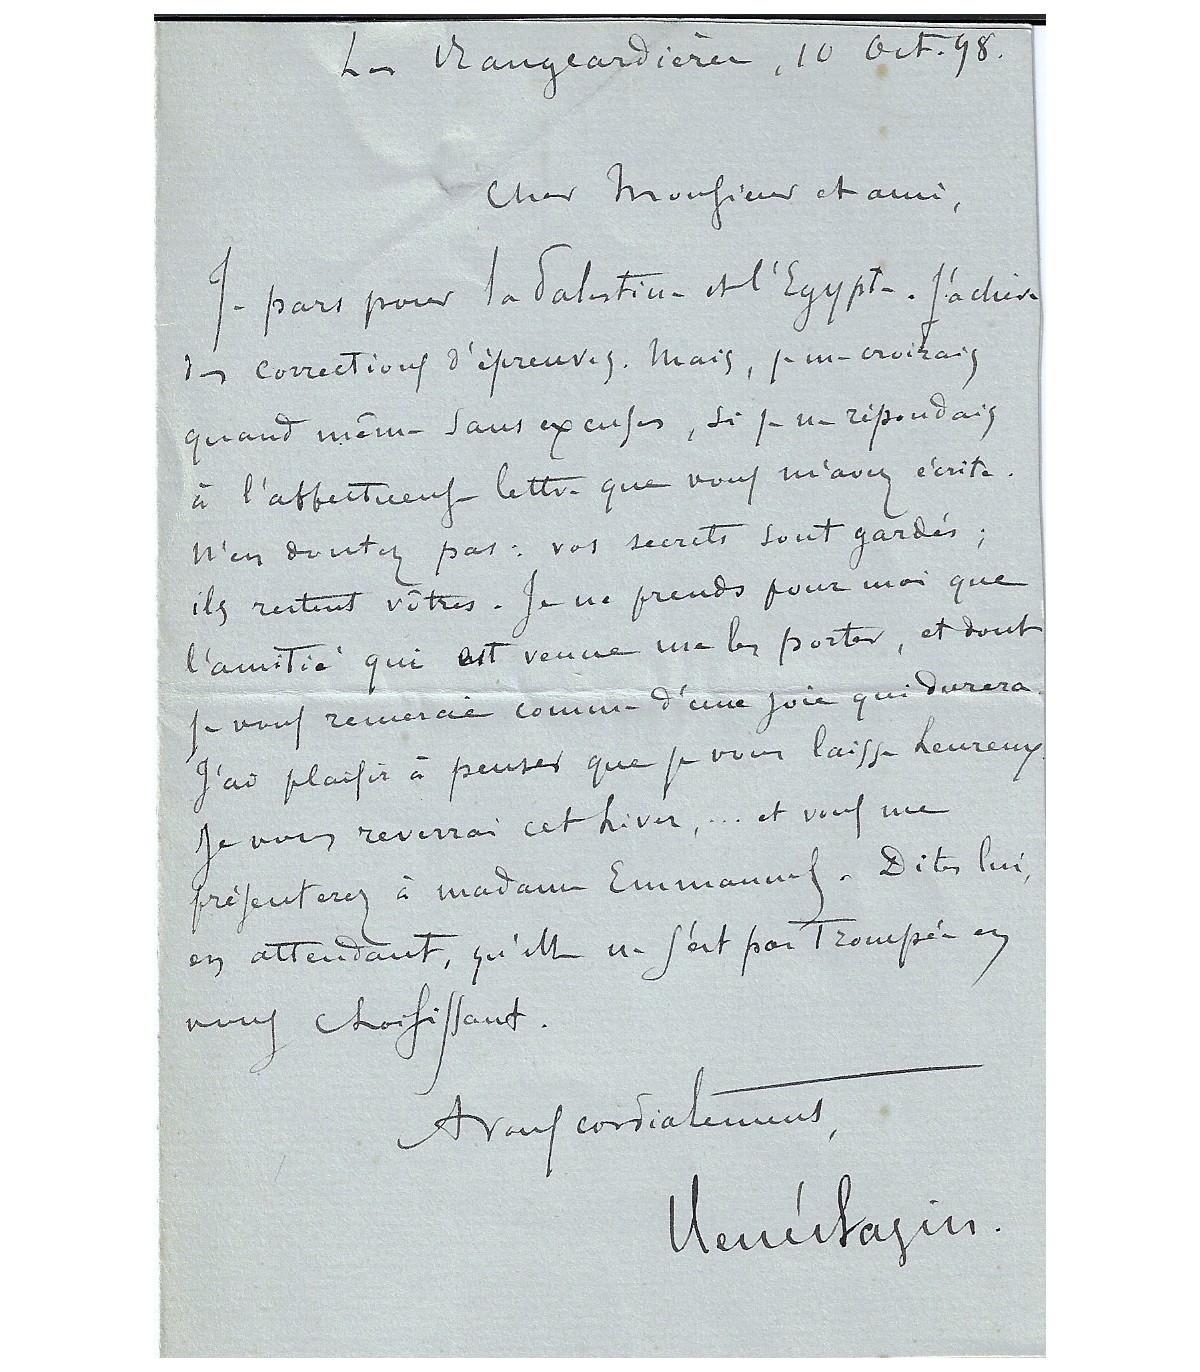 Les Rangeardières, 10 Oct. 98.
Cher Monsieur et ami,
Je pars pour la Palestine et l'Egypte. J'achève
des corrections d'épreuves. Mais, je me croirais
quand même sans excuses, si je ne répondais
à l'affectueuse lettre que vous m'avez écrite.
N'en doutez pas : vos secrets sont gardés ;
ils restent vôtres. Je ne prends pour moi que
l'amitié qui est venue me les porter, et dont
je vous remercie comme d'une joie qui durera.
J'ai plaisir à penser que je vous laisse heureux.
Je vous reverrai cet hiver, ... et vous me
présenterez à madame Emmanuel. Dites lui,
en attendant, qu'elle ne s'est pas trompée en
vous choisissant.
A vous cordialement,
René Bazin.